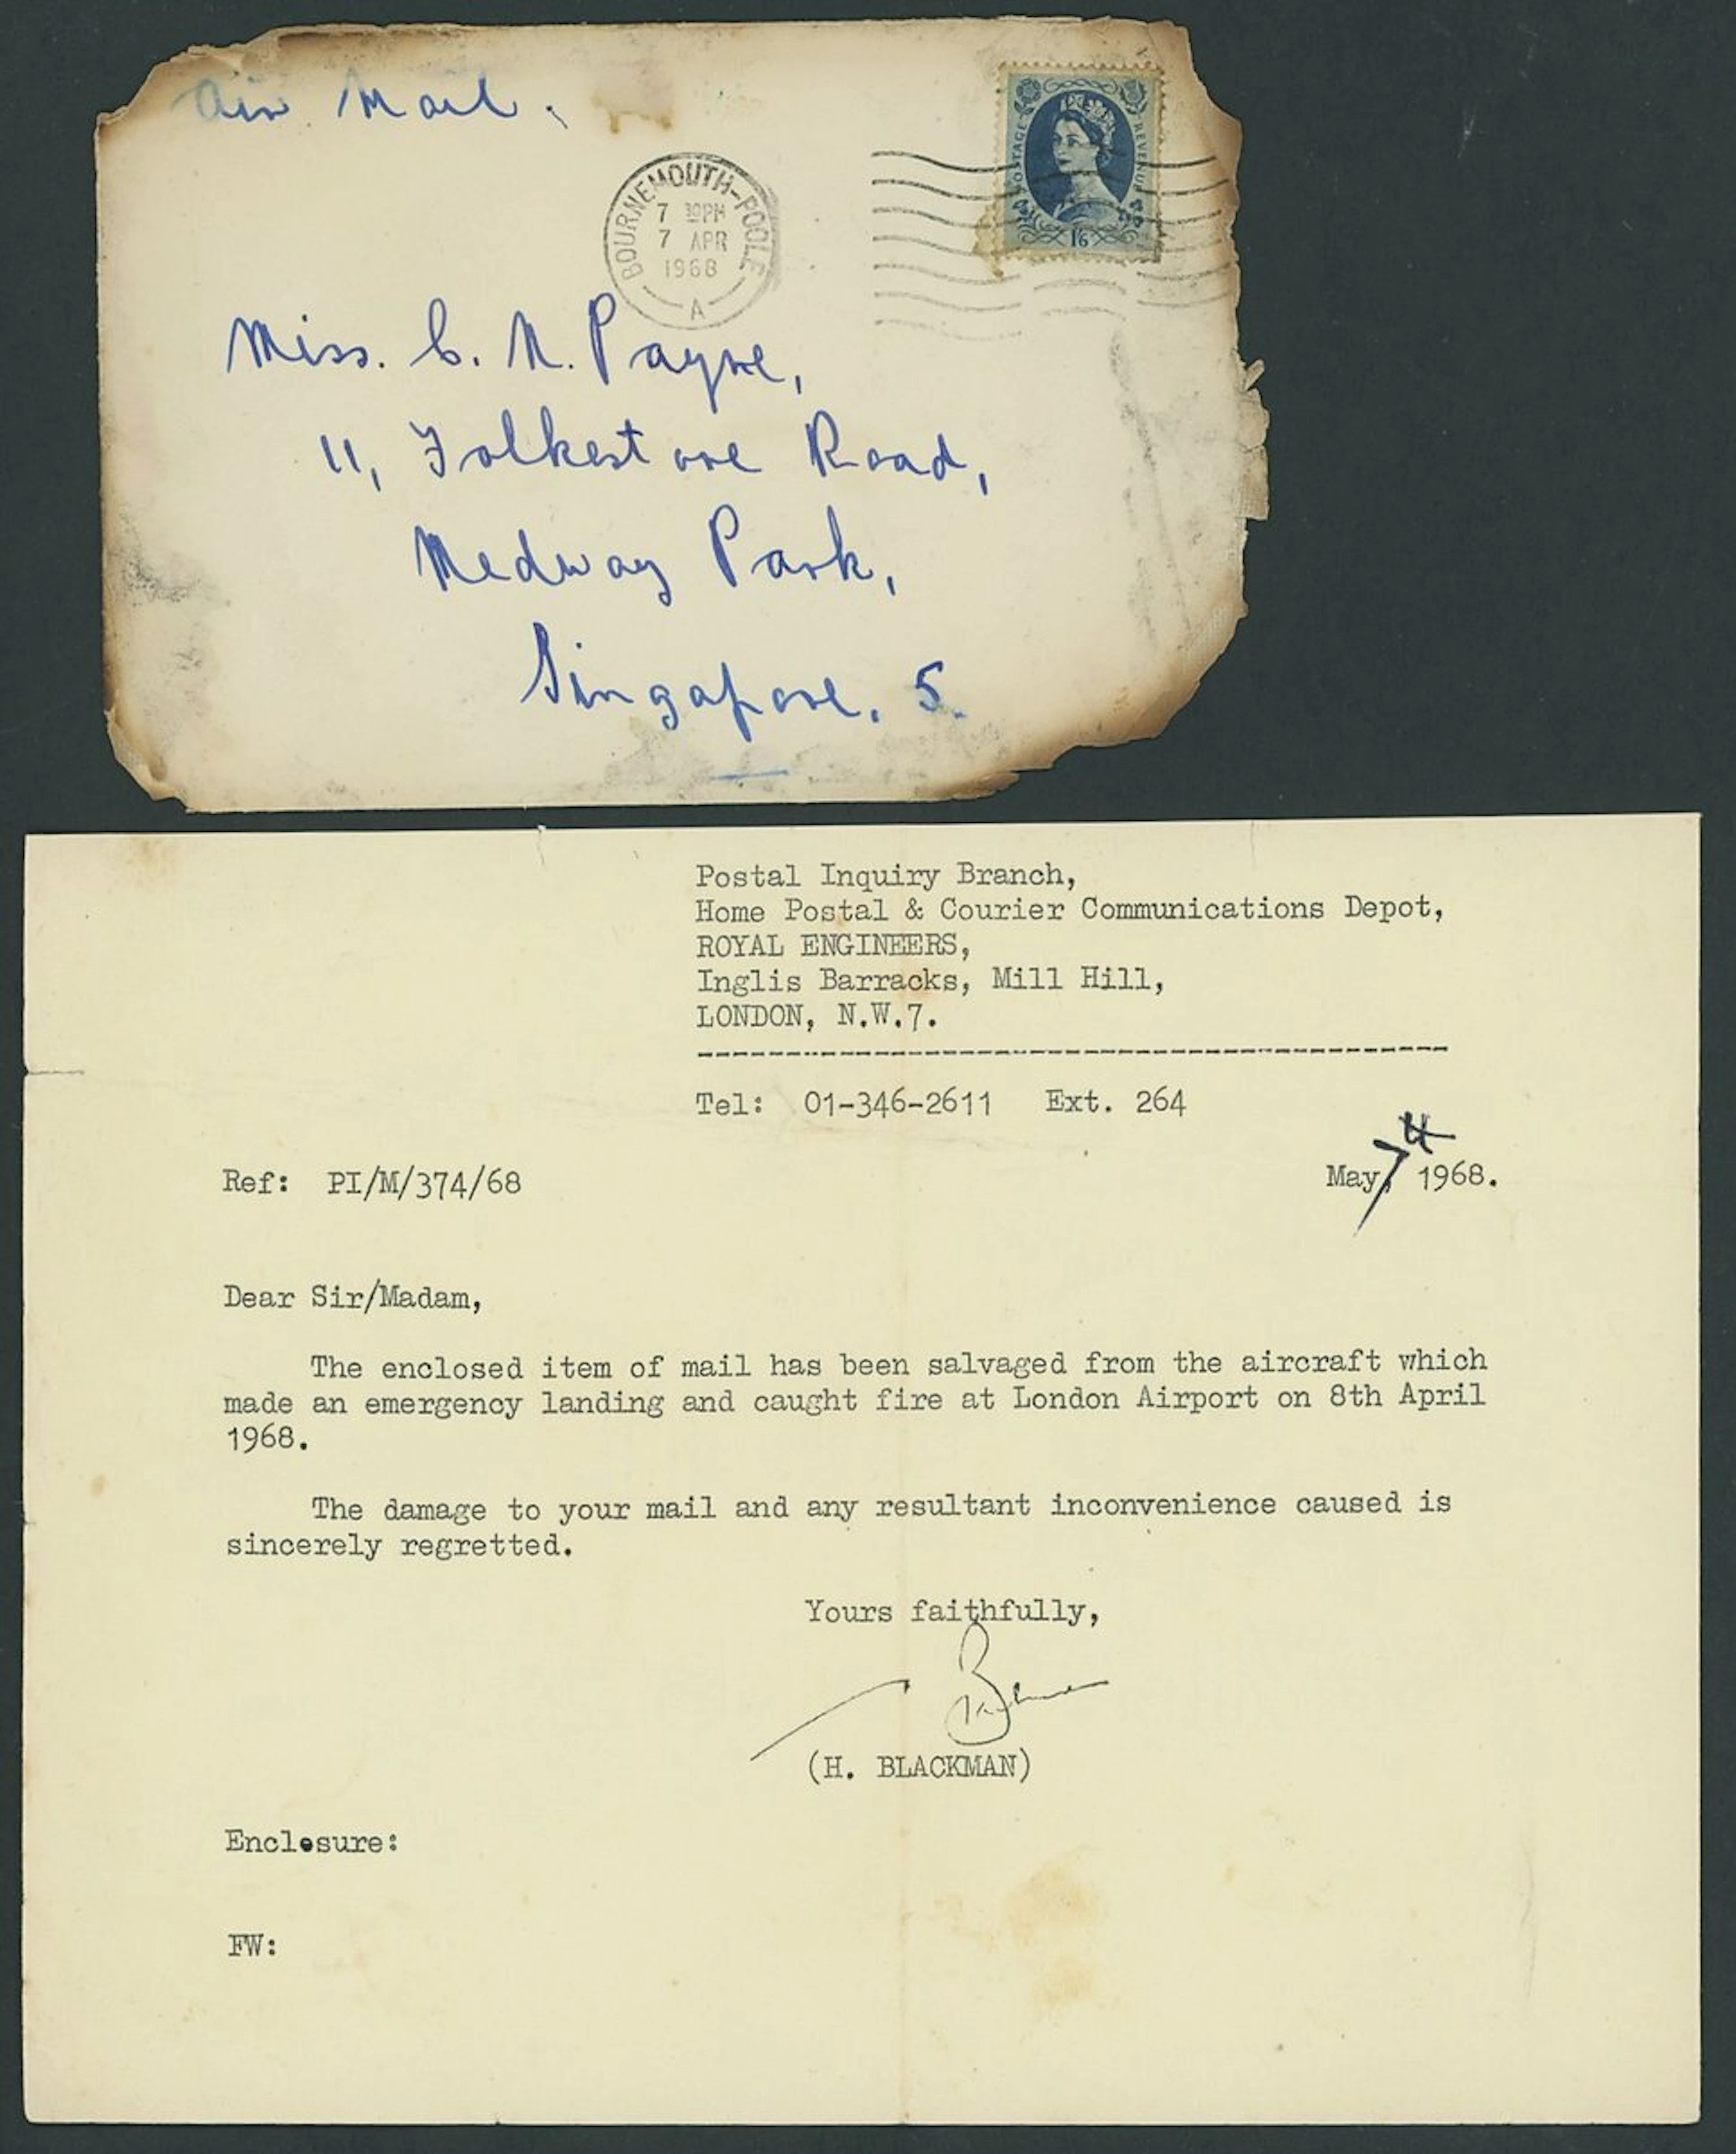 Air Mail.
BOURNEMOUTH-POOLE
7 30PM
7 APR
1968
A
POSTAGE
REVENUE
1/6
Miss. C. N. Payne,
11, Folkestone Road,
Medway Park,
Singapore. 5.
Postal Inquiry Branch,
Home Postal & Courier Communications Depot,
ROYAL ENGINEERS,
Inglis Barracks, Mill Hill,
LONDON, N.W.7.
Tel: 01-346-2611 Ext. 264
Ref: PI/M/374/68
May, 7th 1968.
Dear Sir/Madam,
The enclosed item of mail has been salvaged from the aircraft which
made an emergency landing and caught fire at London Airport on 8th April
1968.
The damage to your mail and any resultant inconvenience caused is
sincerely regretted.
Yours faithfully,
(H. BLACKMAN)
Enclosure:
FW: